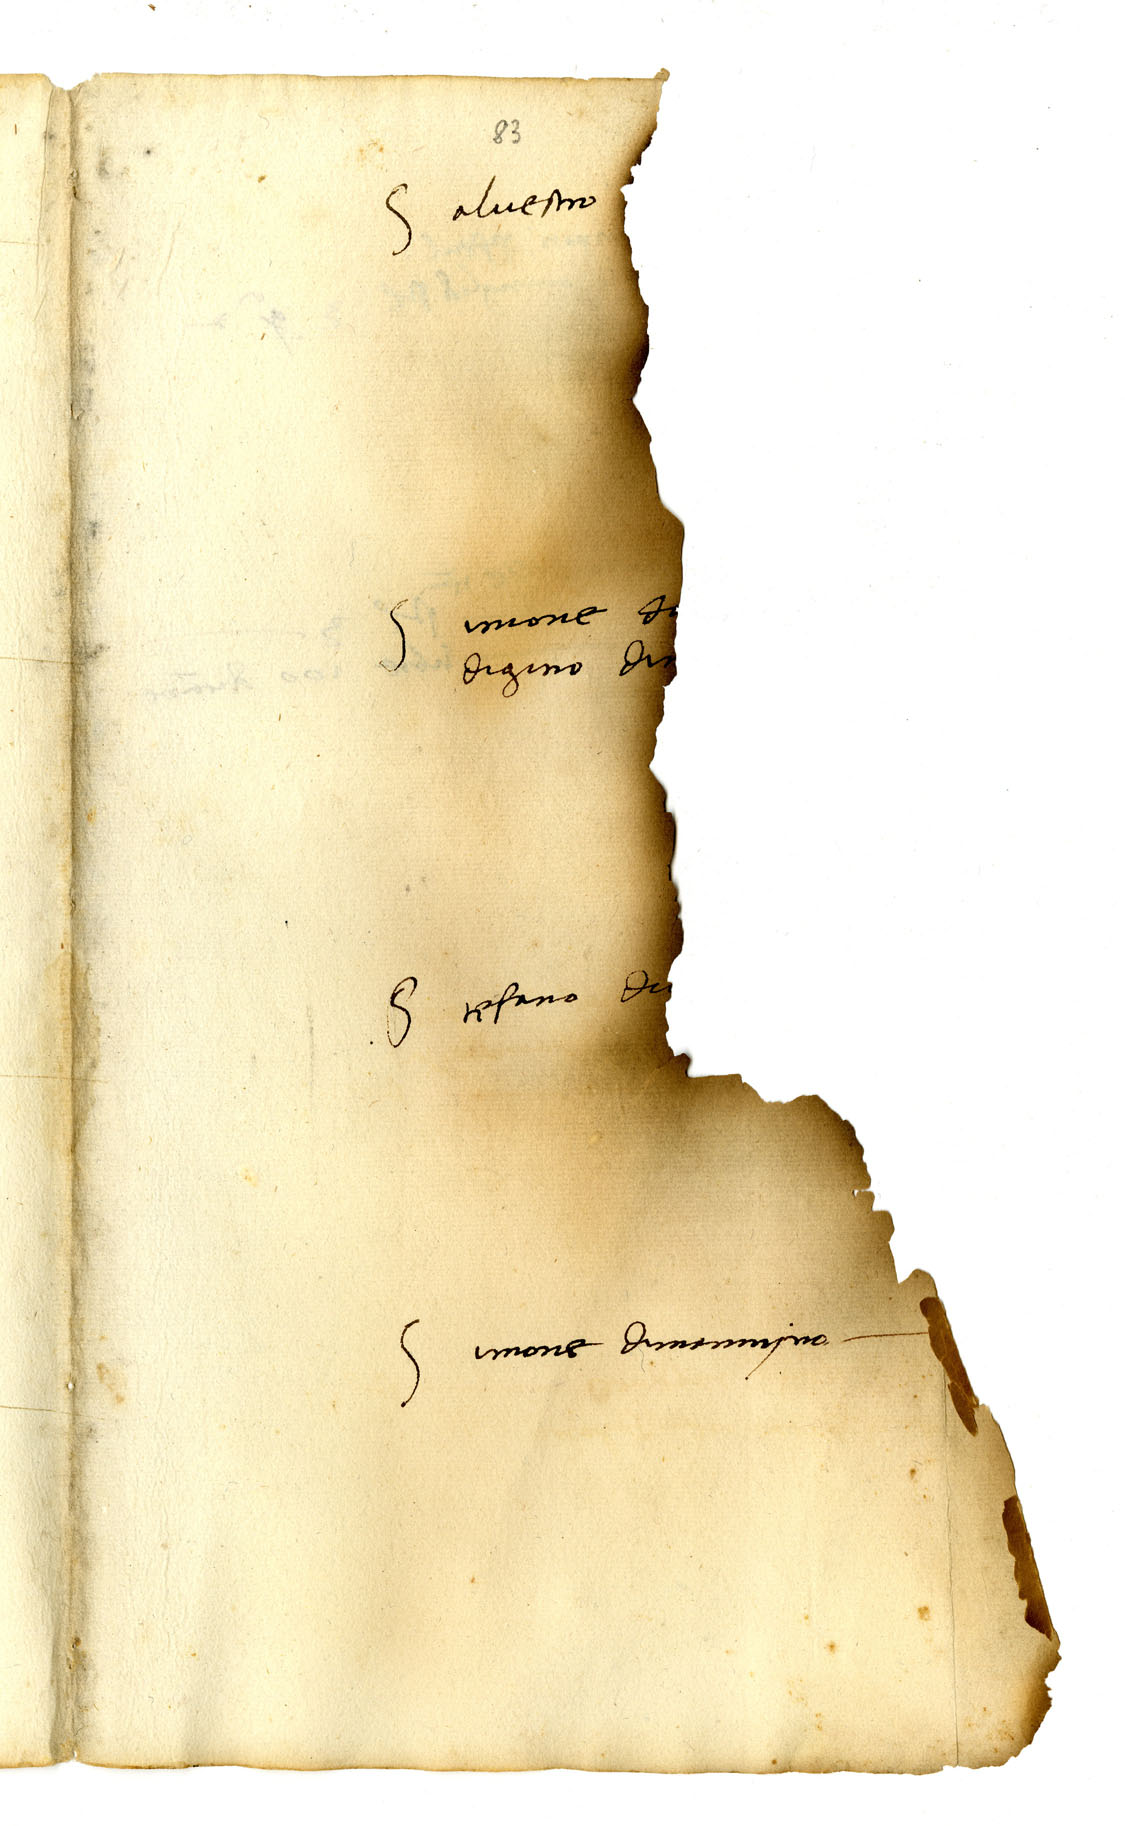 83
S alvestro
S imone di
digino di
S tefano di
S imone